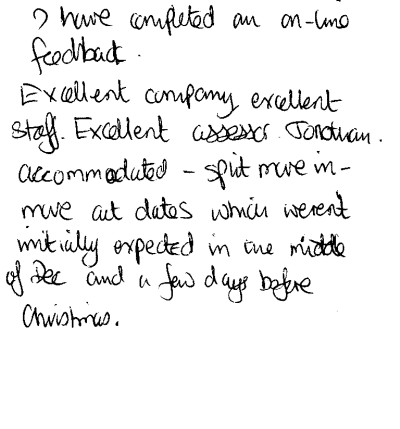 I have completed an on-line
feedback.
Excellent company excellent
staff. Excellent assessor Jonathan.
accommodated - split move in-
move out dates which weren't
initially expected in the middle
of Dec and a few days before
Christmas.